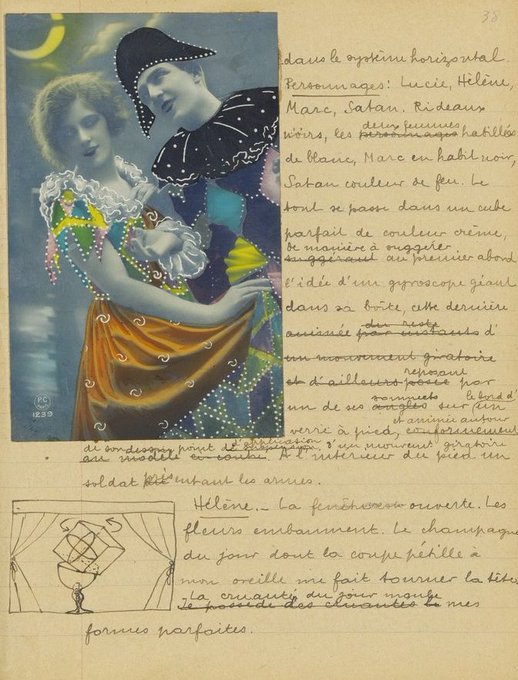 38
dans le système horizontal.
Personnages: Lucie, Hélène,
Marc, Satan. Rideaux
noirs, les personnages deux femmes habillées
de blanc, Marc en habit noir,
Satan couleur de feu. Le
tout se passe dans un cube
parfait de couleur crème,
suggérant de manière à suggérer au premier abord
l'idée d'un gyroscope géant
dans sa boîte, cette dernière
animée par instants du reste d'
un mouvement giratoire
et d'ailleurs posée reposant par
un de ses angles sommets sur un le bord d'
verre à pied, conformément et animée autour
de son point d'application d'un mouvement giratoire
au modèle ci-contre. A l'intérieur du pied un
soldat présentant les armes.
Hélène. _ La fenêtre est ouverte. Les
fleurs embaument. Le champagne
du jour dont la coupe pétille à
mon oreille me fait tourner la tête.
Je possède des La cruauté du jour moule mes
formes parfaites.
PC
1239